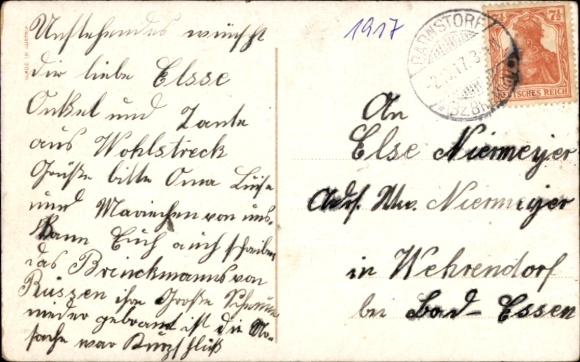 Umstehendes wünscht
dir liebe Elsse
Onkel und Tante
aus Wohlstreck
Grüße bitte Oma Luise
und Mariechen von uns
kann Euch auch schreiben
das Brinckmanns von
Rüssen ihre Große Scheune
nieder gebrant ist die
sache war Kurzschluß
1917
BARNSTORF
7½
DEUTSCHES REICH
An
Else Niemeyer
Adr. Niermeyer
in Wehrendorf
bei Bad-Essen